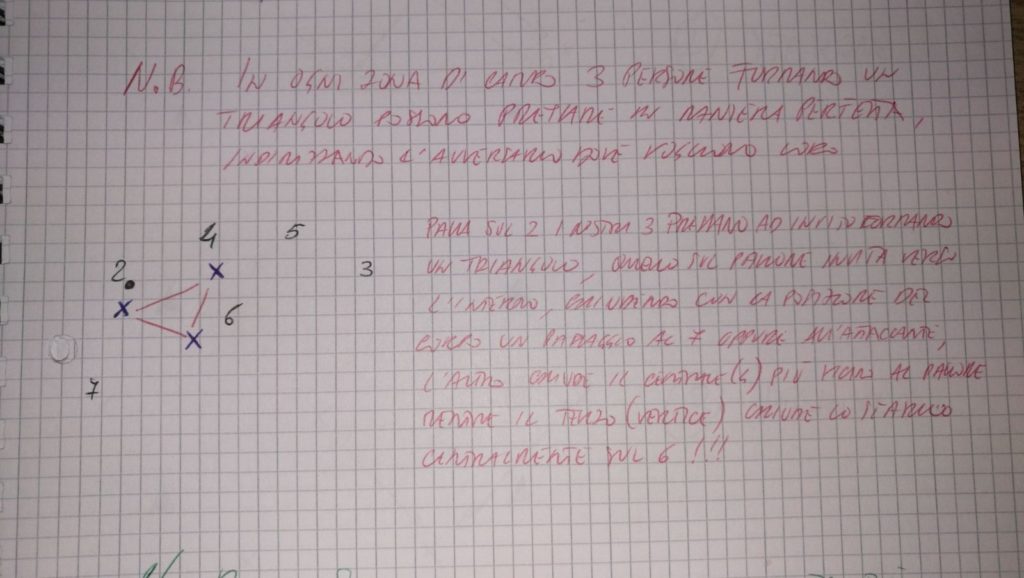 N.B. IN OGNI ZONA DI CAMPO 3 PERSONE FORMANDO UN
TRIANGOLO POSSONO PRESSARE IN MANIERA PERFETTA,
INDIRIZZANDO L'AVVERSARIO DOVE VOGLIAMO LORO
4 5
2 3
6
7
PALLA SUL 2 I NOSTRI 3 PRESSANO AD INVITO FORMANDO
UN TRIANGOLO, QUELLO SUL PALLONE INVITA VERSO
L'INTERNO, CHIUDENDO CON LA POSIZIONE DEL
CORPO UN PASSAGGIO AL 7 OPPURE ALL'ATTACCANTE,
L'ALTRO CHIUDE IL CENTRALE (4) PIÙ VICINO AL PALLONE
MENTRE IL TERZO (VERTICE) CHIUDE LO SCARICO
CENTRALMENTE SUL 6 !!!